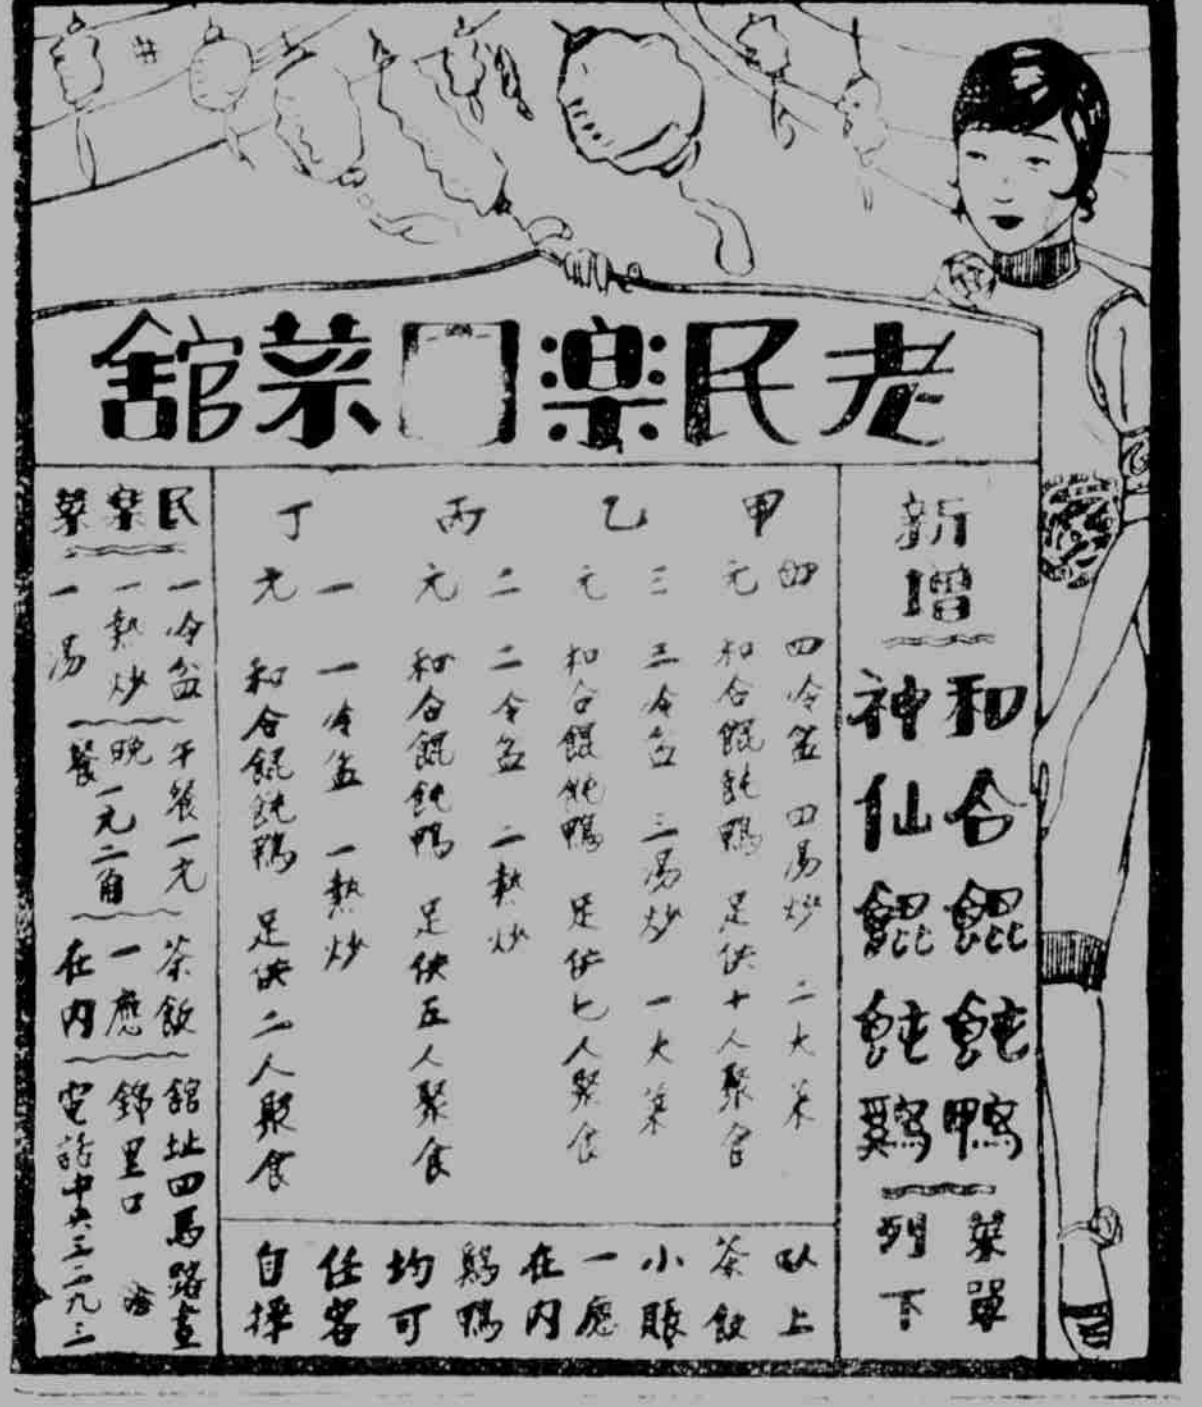 老民楽門菜舘
新增
和合餛飩鴨
神仙餛飩鷄
菜單
列下
甲
四 四冷盆 四湯炒 二大菜
元 和合餛飩鴨 足供十人聚食
乙
三 三冷盆 三湯炒 一大菜
元 和合餛飩鴨 足供七人聚食
丙
二 二冷盆 二熱炒
元 和合餛飩鴨 足供五人聚食
丁
一 一冷盆 一熱炒
元 和合餛飩鴨 足供二人聚食
以上
茶飯
小賬
一應
在內
鷄鴨
均可
任客
自擇
民楽菜
一冷盆
一熱炒
一湯
午餐一元
晚餐一元二角
茶飯
一應
在內
舘址四馬路畫
錦里口
電話中央三二九三